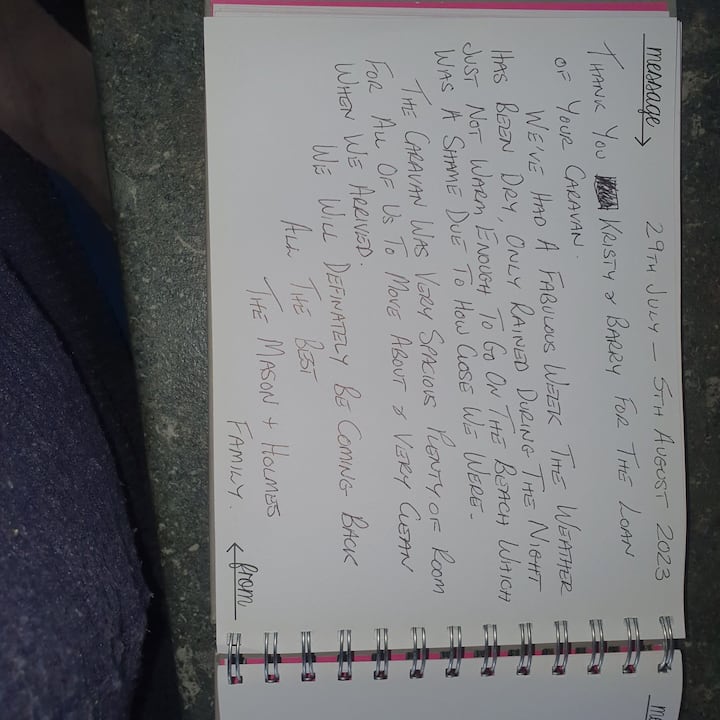 message
29TH JULY – 5TH AUGUST 2023
THANK YOU KRISTY & BARRY FOR THE LOAN
OF YOUR CARAVAN.
WE'VE HAD A FABULOUS WEEK THE WEATHER
HAS BEEN DRY, ONLY RAINED DURING THE NIGHT
JUST NOT WARM ENOUGH TO GO ON THE BEACH WHICH
WAS A SHAME DUE TO HOW CLOSE WE WERE.
THE CARAVAN WAS VERY SPACIOUS PLENTY OF ROOM
FOR ALL OF US TO MOVE ABOUT & VERY CLEAN
WHEN WE ARRIVED.
WE WILL DEFINATELY BE COMING BACK
ALL THE BEST
THE MASON + HOLMES
FAMILY.
from